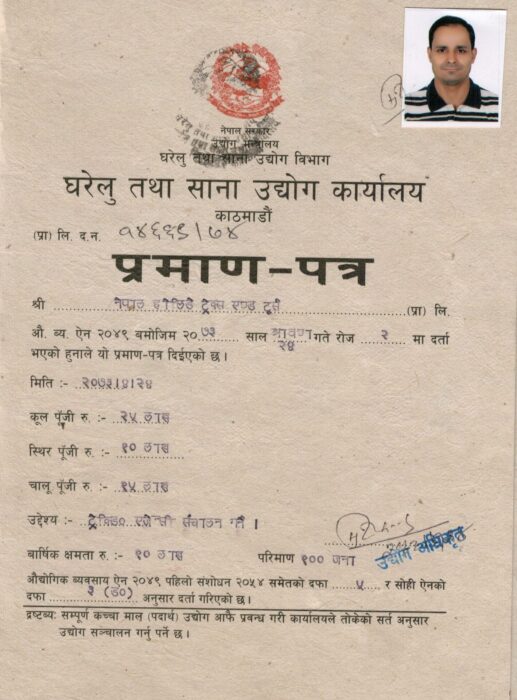 नेपाल सरकार
उद्योग मन्त्रालय
घरेलु तथा साना उद्योग विभाग
घरेलु तथा साना उद्योग कार्यालय
काठमाडौं
(प्रा) लि. द.न. १४६६९/७४
प्रमाण-पत्र
श्री नेपाल होलिडे ट्रेक्स एण्ड टुर्स (प्रा) लि.
औ. ब्य. ऐन २०४९ बमोजिम २०७३ साल श्रावण २४ गते रोज २ मा दर्ता
भएको हुनाले यो प्रमाण-पत्र दिईएको छ।
मिति :- २०७३।४।२४
कूल पूँजी रु. :- २५ लाख
स्थिर पूँजी रु. :- १० लाख
चालू पूँजी रु. :- १५ लाख
उद्देश्य :- ट्रेकिङ एजेन्सी संचालन गर्ने ।
बार्षिक क्षमता रु. :- ९० लाख परिमाण १०० जना
उद्योग अधिकृत
औद्योगिक ब्यवसाय ऐन २०४९ पहिलो संशोधन २०५४ समेतको दफा ५ र सोही ऐनको
दफा ३ (ङ०) अनुसार दर्ता गरिएको छ।
द्रष्टब्यः सम्पूर्ण कच्चा माल (पदार्थ) उद्योग आफै प्रवन्ध गरी कार्यालयले तोकेको सर्त अनुसार
उद्योग सञ्चालन गर्नु पर्ने छ।